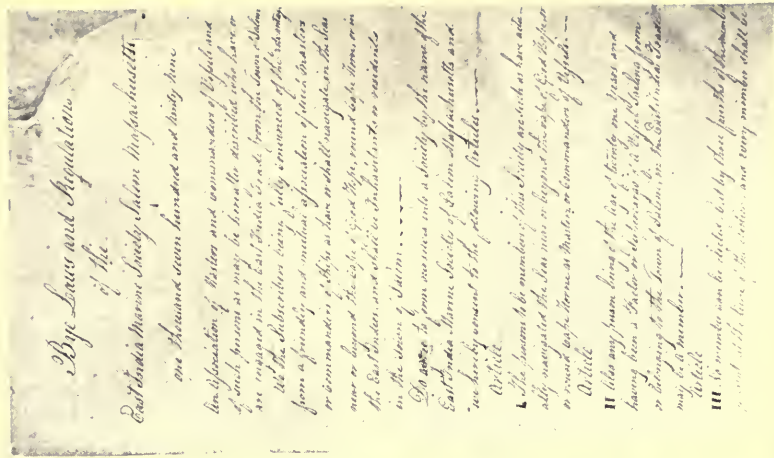 Bye Laws and Regulations
of the
East India Marine Society Salem Massachusetts
one thousand seven hundred and ninty nine
An Association of Masters and commanders of Vessels and
of such persons as may be hereafter described who have or
are engaged in the East India Trade from the Town of Salem
We the Subscribers being fully convinced of the advantages
from a friendly and mutual association of such Masters
or commanders of Ships as have or shall navigate in the Seas
near or beyond the cape of Good Hope, round cape Horn or in
the East Indies, and shall be Inhabitants or residents
in the Town of Salem.
Do agree to form ourselves into a Society by the name of the
East India Marine Society of Salem Massachusetts and
we hereby consent to the following Articles.
Article
I The persons to be members of this Society are such as have actu-
ally navigated the Seas near or beyond the cape of Good Hope or
or round cape Horne as Master or Commander of Vessels.
Article
II Also any person being of the age of twenty one years and
having been a Factor or Supercargo of a Vessel Sailing from
or belonging to the Town of Salem, in the East india Trade
may be a member.
Article
III No member can be elected but by three fourths of the members
present at the time of the election and every member shall be